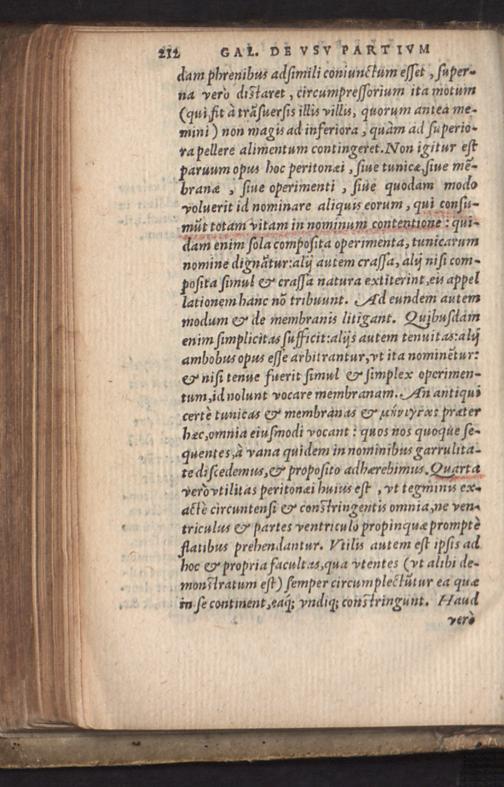 212 GAL. DE VSV PARTIVM
dam phrenibus adsimili coniunctum esset, super-
na verò distaret, circumpressorium ita motum
(qui fit à trãsuersis illis villis, quorum antea me-
mini) non magis ad inferiora, quàm ad superio-
ra pellere alimentum contingeret. Non igitur est
paruum opus hoc peritonæi, siue tunicæ, siue mẽ-
branæ, siue operimenti, siue quodam modo
voluerit id nominare aliquis eorum, qui consu-
mũt totam vitam in nominum contentione: qui-
dam enim sola composita operimenta, tunicarum
nomine dignãtur: alij autem crassa, alij nisi com-
posita simul & crassa natura extiterint, eis appel
lationem hanc nõ tribuunt. Ad eundem autem
modum & de membranis litigant. Quibusdam
enim simplicitas sufficit: alijs autem tenuitas: alij
ambobus opus esse arbitrantur, vt ita nominẽtur:
& nisi tenue fuerit simul & simplex operimen-
tum, id nolunt vocare membranam. An antiqui
certè tunicas & membranas & μήνιγγας præter
hæc, omnia eiusmodi vocant: quos nos quoque se-
quentes, à vana quidem in nominibus garrulita-
te discedemus, & proposito adhærebimus. Quarta
verò vtilitas peritonæi huius est, vt tegminis ex-
actè circuntensi & constringentis omnia, ne ven-
triculus & partes ventriculo propinquæ promptè
flatibus prehendantur. Vtilis autem est ipsis ad
hoc & propria facultas, qua vtentes (vt alibi de-
monstratum est) semper circumplectũtur ea quæ
in se continent, eaq; vndiq; constringunt. Haud
verò